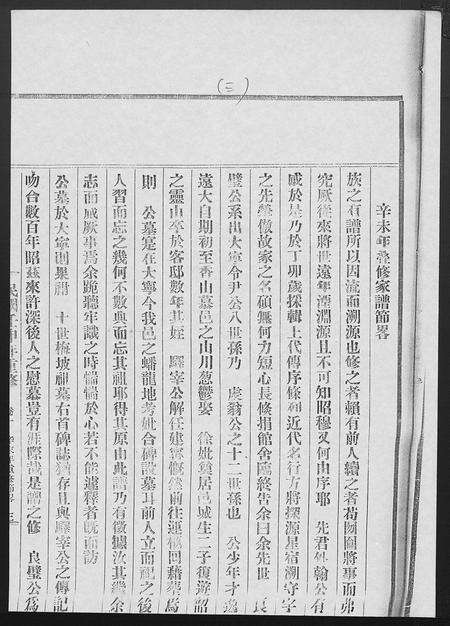 (三)
辛未年叠修家譜節畧
族之有譜所以因流而溯源也修之者賴有前人續之者苟罔圖將事而弗
究厥後來將世遠年湮淵源且不可知昭穆又何由序耶 先君 翰公有
感於是乃於丁卯歲採輯上代傳序條列近代名行方將探源星宿溯守字
之先肇傲故家之名碩無何力短心長修捐館舍臨終告余曰余先世 良
璧公系出大寧令尹公八世孫乃 虞翁公之十二世孫也 公少年才逸
遠大自期初至香山慕邑之山川葱鬱娶 徐妣奠居邑城生二子復遊韶
之靈山卒於客邸數年其姪 驛宰公解任建寧慨然前往運柩回籍葬焉
則 公墓寔在大寧今我邑之蟠龍地考妣合碑設墓耳前人立而配之後
人習而忘之幾何不數典而忘其祖耶得其原由此譜乃有徵據汝其繼余
志而成厥事焉余跪聽牢識之時惴惴於心若不能遽釋者既而訪
公墓於大寧則果腊 十世梅坡祖墓右首碑誌猶存且與驛宰公之傳記
吻合數百年昭茲來許深後人之慰慕豈有涯際哉是譜之修 良璧公為
民國壬申年重修